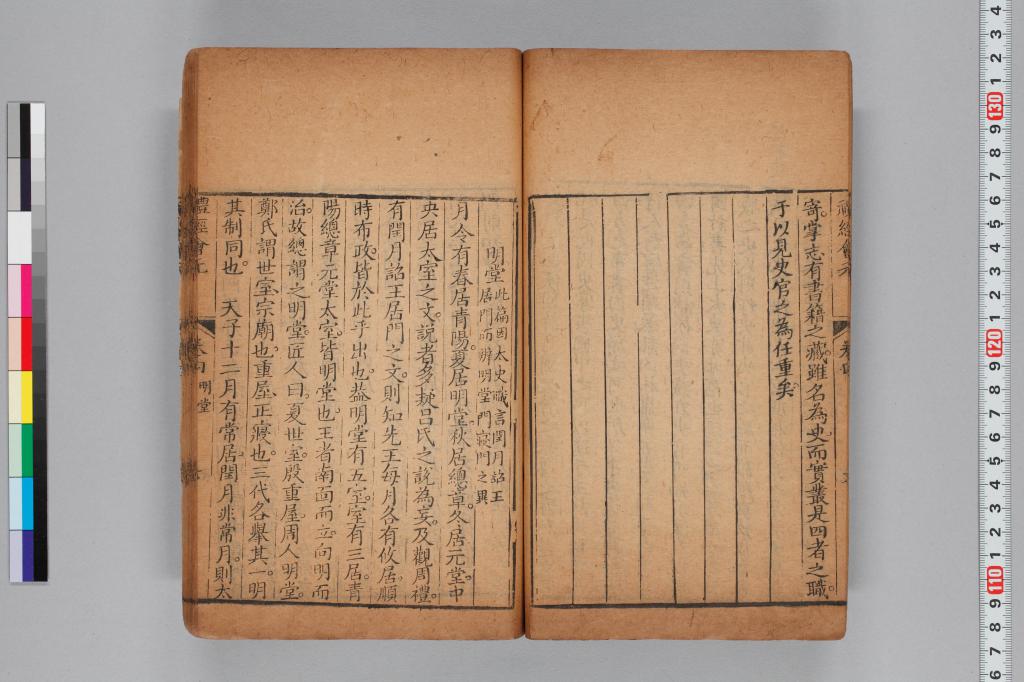 寄掌志有書籍之藏雖名為史而實叢是四者之職
于以見史官之為任重矣
明堂 此篇因太史職言閏月詔王
居門而辨明堂門寢門之異
月令有春居青陽夏居明堂秋居總章冬居元堂中
央居太室之文說者多疑呂氏之說為妄及觀周禮
有閏月詔王居門之文則知先王每月各有攸居順
時布政皆於此乎出也葢明堂有五室室有三居青
陽總章元堂太室皆明堂也王者南面而立向明而
治故總謂之明堂匠人曰夏世室殷重屋周人明堂
鄭氏謂世室宗廟也重屋正寢也三代各舉其一明
其制同也 天子十二月有常居閏月非常月則太
禮經會元
明堂